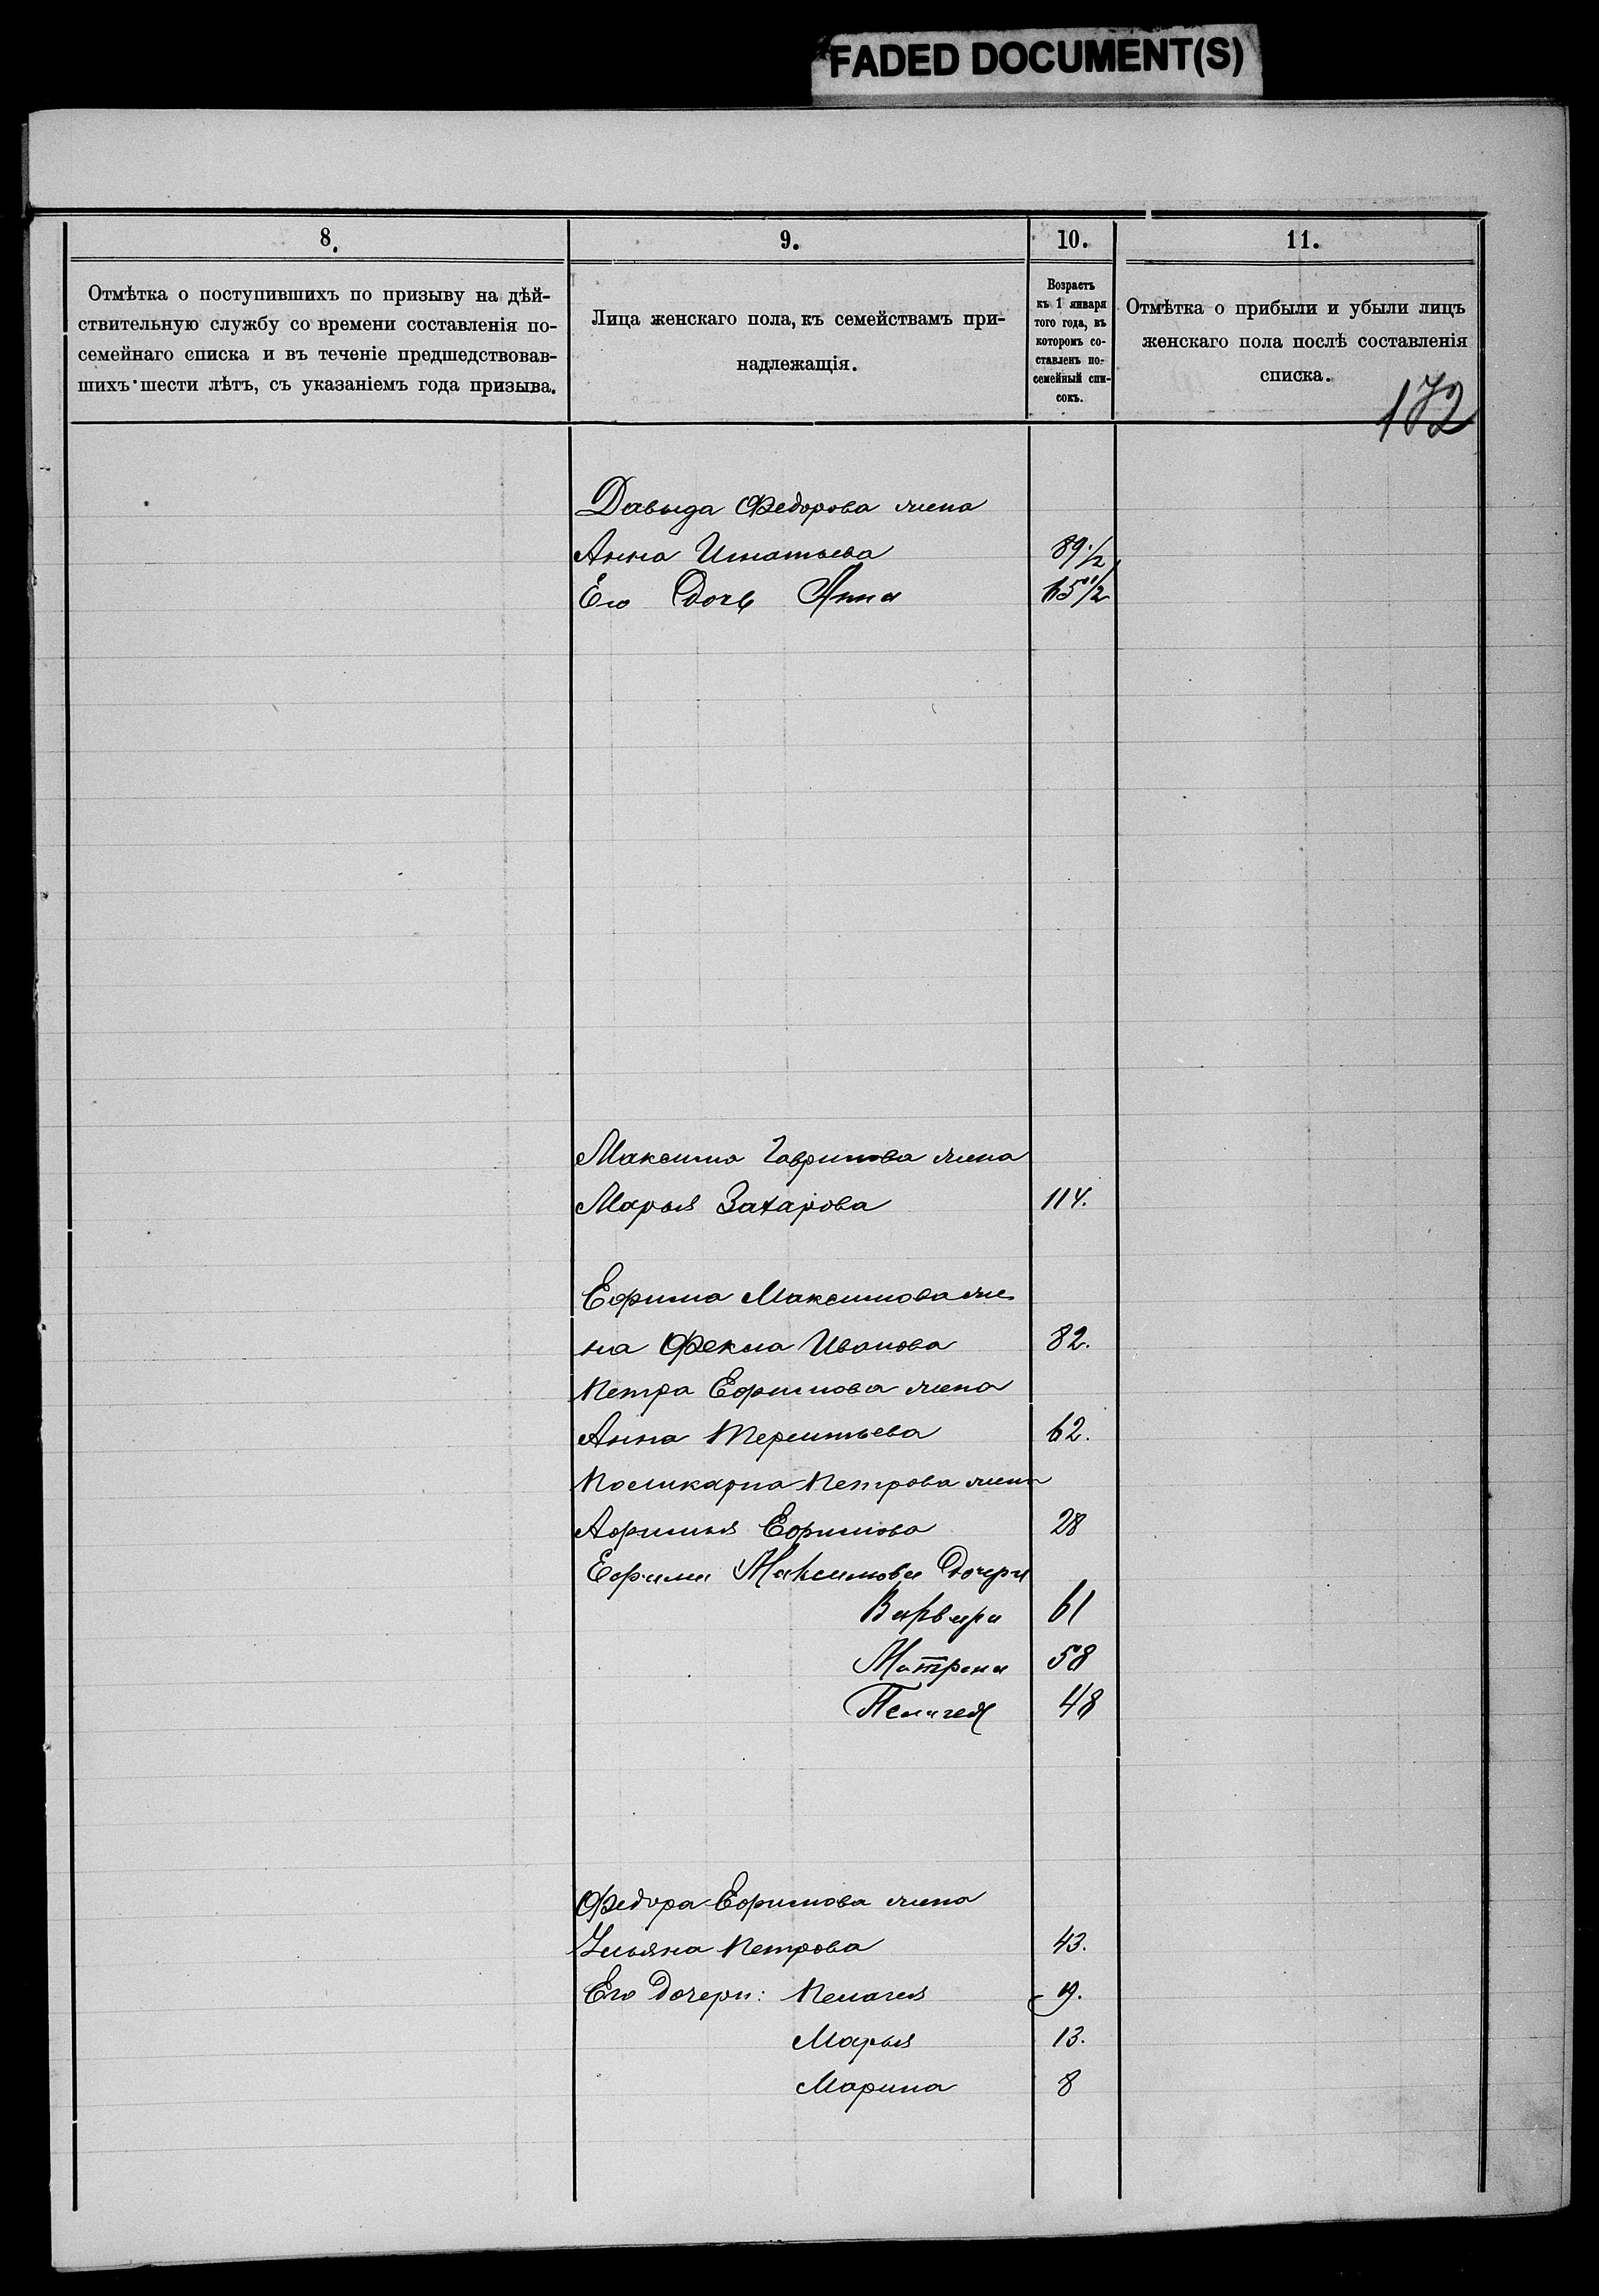 FADED DOCUMENT(S)
8.
9.
10.
11.
Отмѣтка о поступившихъ по призыву на дѣй-
ствительную службу со времени составленія по-
семейнаго списка и въ теченіе предшедствовав-
шихъ шести лѣтъ, съ указаніемъ года призыва.
Лица женскаго пола, къ семействамъ при-
надлежащія.
Возрастъ
къ 1 января
того года, въ
которомъ со-
ставленъ по-
семейный спи-
сокъ.
Отмѣтка о прибыли и убыли лицъ
женскаго пола послѣ составленія
списка.
172
Давыда Федорова жена
Анна Игнатьева 89 1/2
Его Дочь Анна 65 1/2
Максима Гаврилова жена
Марья Захарова 114.
Ефима Максимова же
на Фекла Иванова 82.
Петра Ефимова жена
Анна Терентьева 62.
Поликарпа Петрова жена
Афимья Ефимова 28
Ефима Максимова Дочери
Варвара 61
Матрена 58
Пелагея 48
Федора Ефимова жена
Ульяна Петрова 43.
Его Дочери: Пелагея 19.
Марья 13.
Марина 8